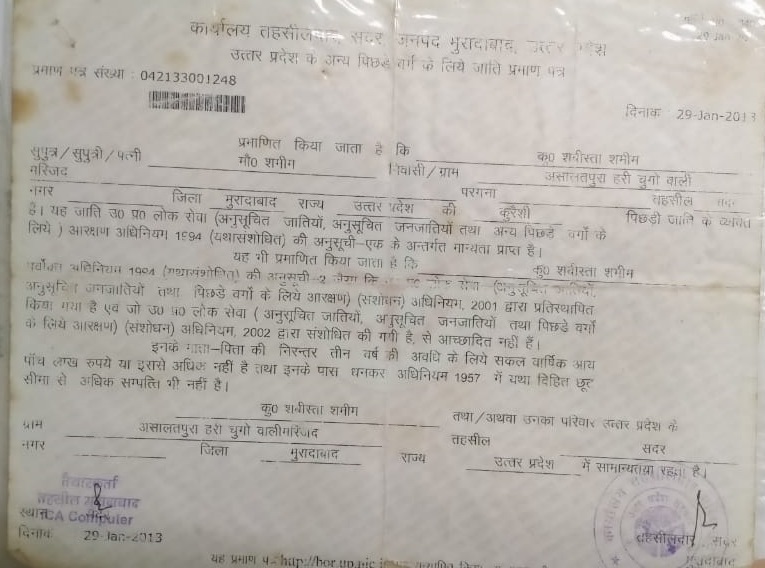 कार्यालय तहसीलदार, सदर, जनपद मुरादाबाद, उत्तर प्रदेश
29 Jan
उत्तर प्रदेश के अन्य पिछड़े वर्ग के लिये जाति प्रमाण पत्र
प्रमाण पत्र संख्या : 042133001248
दिनांक : 29-Jan-2013
प्रमाणित किया जाता है कि कु0 शबीस्ता शमीम
सुपुत्र/सुपुत्री/पत्नी मौ0 शमीम निवासी/ग्राम असालतपुरा हरी चुगो वाली
मस्जिद परगना तहसील सदर
नगर जिला मुरादाबाद राज्य उत्तर प्रदेश की कुरैशी पिछड़ी जाति के व्यक्ति
है। यह जाति उ0 प्र0 लोक सेवा (अनुसूचित जातियों, अनुसूचित जनजातियों तथा अन्य पिछड़े वर्गों के
लिये ) आरक्षण अधिनियम 1994 (यथासंशोधित) की अनुसूची-एक के अन्तर्गत मान्यता प्राप्त है।
यह भी प्रमाणित किया जाता है कि कु0 शबीस्ता शमीम
पूर्वोक्त अधिनियम 1994 (यथासंशोधित) की अनुसूची-2 जैसा कि लोक सेवा (अनुसूचित जातियों,
अनुसूचित जनजातियों तथा पिछड़े वर्गों के लिये आरक्षण) (संशोधन) अधिनियम, 2001 द्वारा प्रतिस्थापित
किया गया है एवं जो उ0 प्र0 लोक सेवा ( अनुसूचित जातियों, अनुसूचित जनजातियों तथा पिछड़े वर्गों
के लिये आरक्षण) (संशोधन) अधिनियम, 2002 द्वारा संशोधित की गयी है, से आच्छादित नहीं हैं।
इनके माता-पिता की निरन्तर तीन वर्ष की अवधि के लिये सकल वार्षिक आय
पाँच लाख रुपये या इससे अधिक नहीं है तथा इनके पास धनकर अधिनियम 1957 में यथा विहित छूट
सीमा से अधिक सम्पत्ति भी नहीं है।
कु0 शबीस्ता शमीम तथा/अथवा उनका परिवार उत्तर प्रदेश के
ग्राम असालतपुरा हरी चुगो वालीमस्जिद तहसील सदर
नगर जिला मुरादाबाद राज्य उत्तर प्रदेश में सामान्यतया रहता है।
तैयारकर्ता
तहसील मुरादाबाद
स्थान CA Computer
तहसीलदार, सदर
दिनांक 29-Jan-2013
मुरादाबाद
यह प्रमाण http://bor.up.nic.in